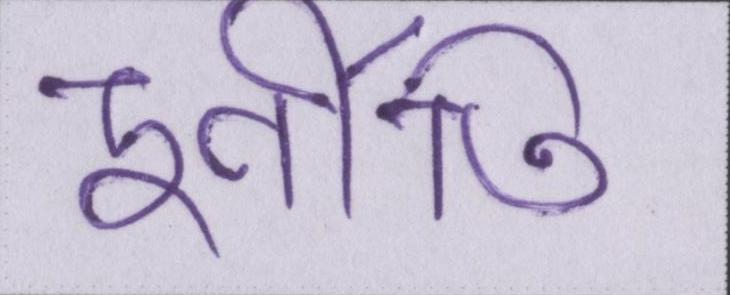 দুর্নীতি